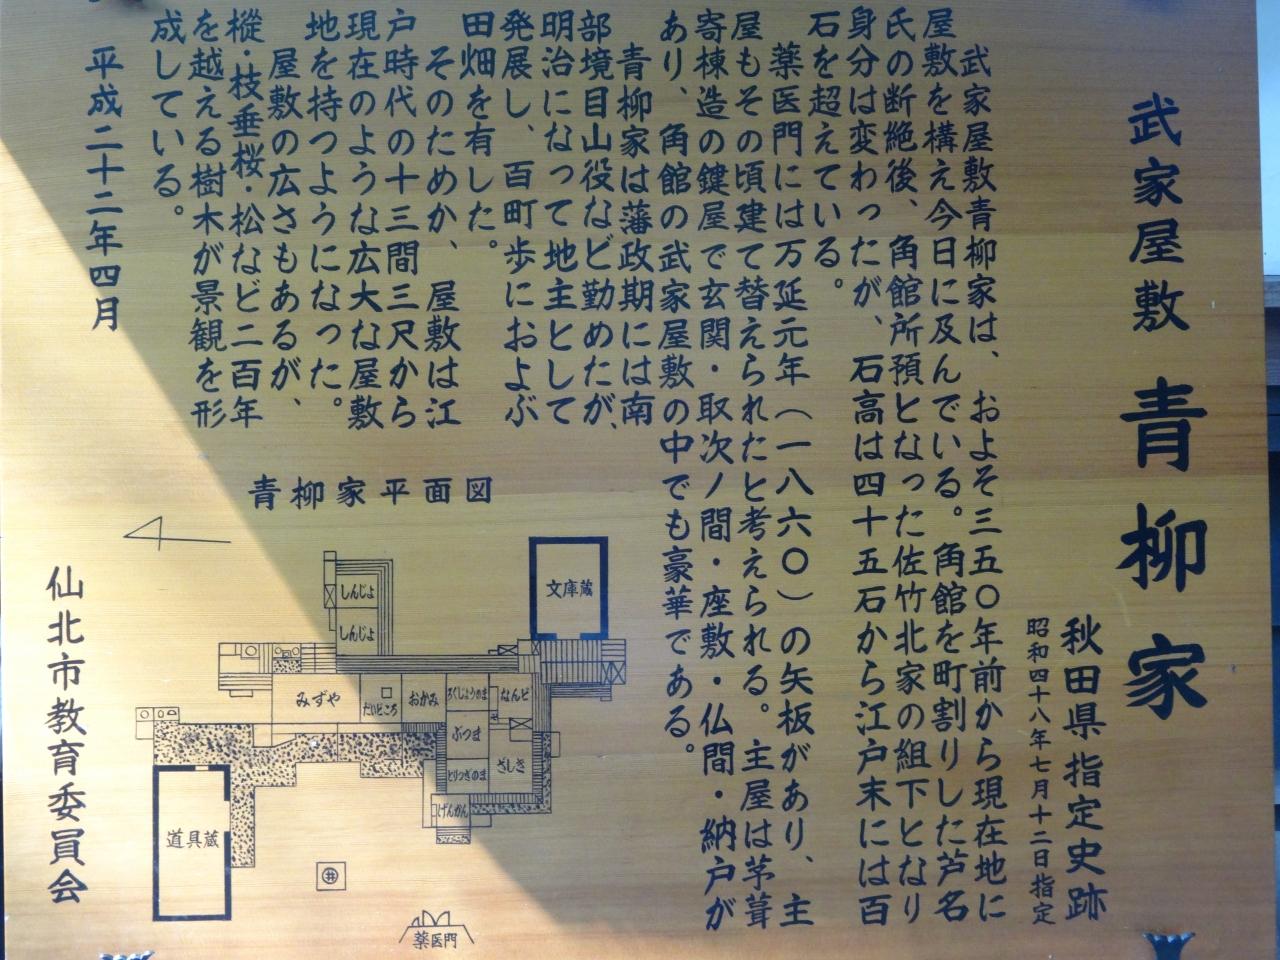 武家屋敷 青柳家
秋田県指定史跡
昭和四十八年七月十二日指定
武家屋敷青柳家は、およそ三五〇年前から現在地に
屋敷を構え今日に及んでいる。角館を町割りした芦名
氏の断絶後、角館所預となった佐竹北家の組下となり
身分は変わったが、石高は四十五石から江戸末には百
石を超えている。
薬医門には万延元年(一八六〇)の矢板があり、主
屋もその頃建て替えられたと考えられる。主屋は茅葺
寄棟造の鍵屋で玄関・取次ノ間・座敷・仏間・納戸が
あり、角館の武家屋敷の中でも豪華である。
青柳家は藩政期には南
部境目山役など勤めたが、
明治になって地主として
発展し、百町歩におよぶ
田畑を有した。
そのためか、屋敷は江
戸時代の十三間三尺から
現在のような広大な屋敷
地を持つようになった。
屋敷の広さもあるが、
樅・枝垂桜・松など二百年
を越える樹木が景観を形
成している。
平成二十二年四月
仙北市教育委員会
青柳家平面図
文庫蔵
しんじょ
しんじょ
みずや
だいどころ
おかみ
ろくじょうのま
なんど
ぶつま
とりつぎのま
ざしき
げんかん
道具蔵
井
薬医門